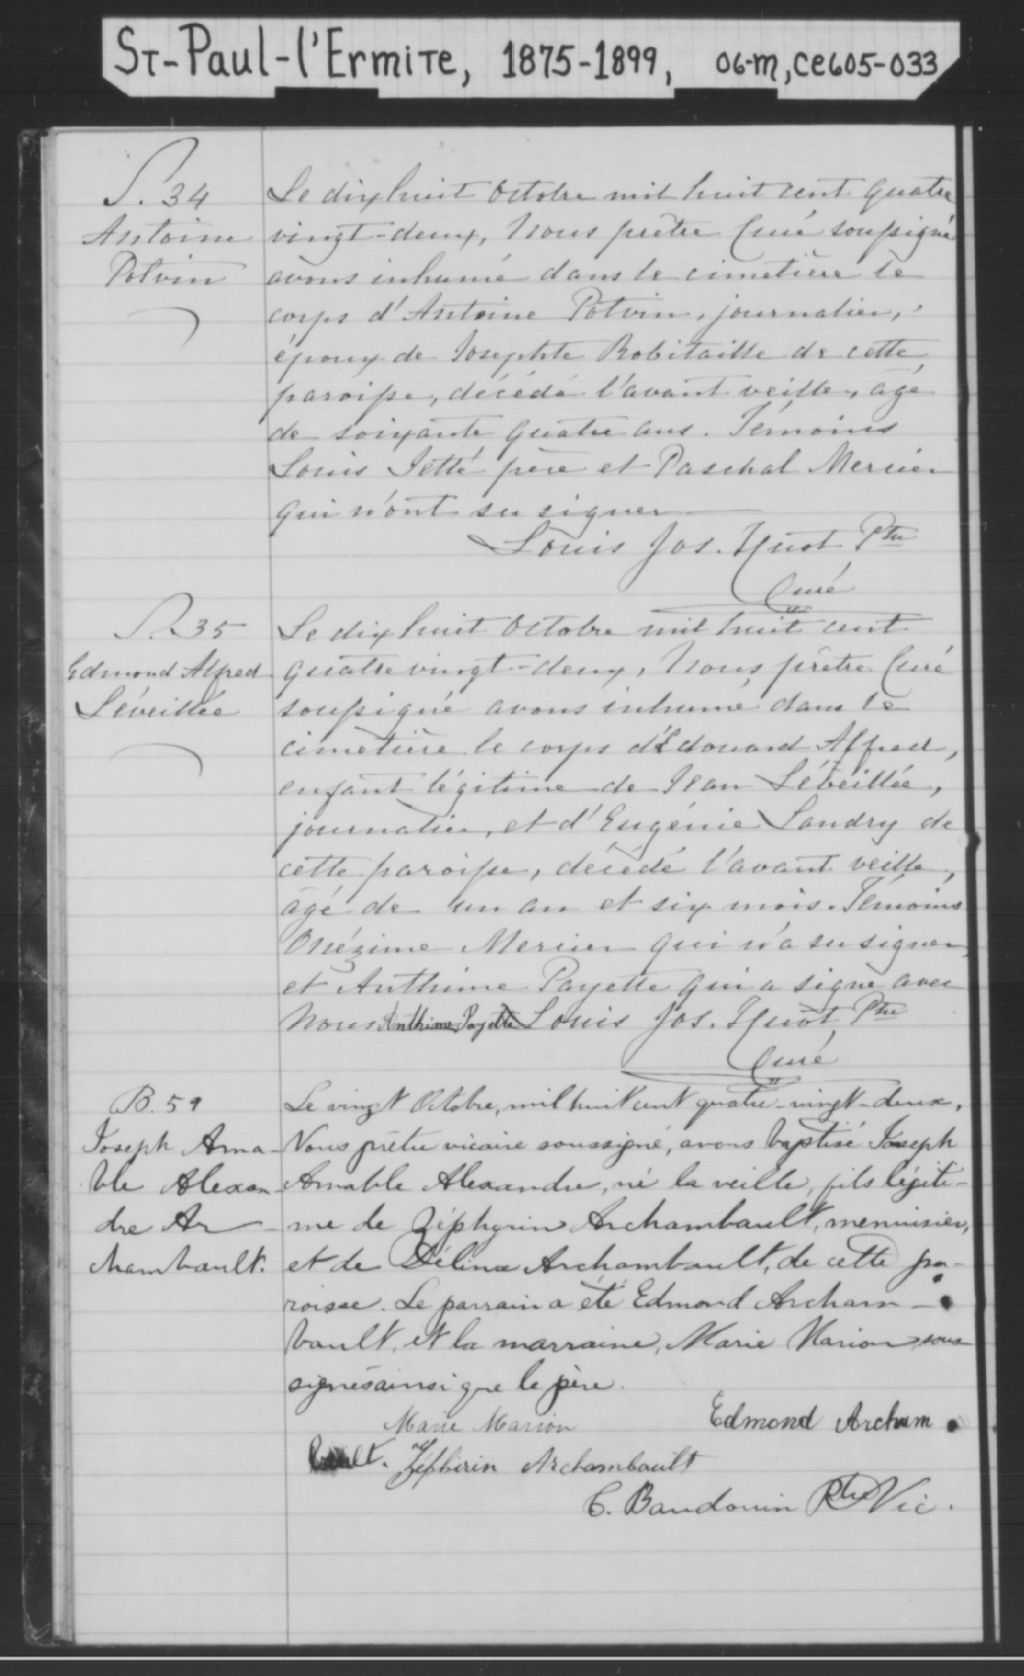 St-Paul-l'Ermite, 1875-1899, 06-m, ce605-033
S. 34
Antoine
Potvin
Le dix huit Octobre mil huit cent quatre
vingt-deux, Nous prêtre Curé soussigné
avons inhumé dans le cimetière le
corps d'Antoine Potvin, journalier,
époux de Josephte Robitaille de cette
paroisse, décédé l'avant veille, âgé
de soixante quatre ans. Témoins
Louis Jetté père et Paschal Mercier
qui n'ont su signer
Louis Jos. Huot Ptre
Curé
S. 35
Edmond Alfred
Léveillée
Le dix huit Octobre mil huit cent
quatre vingt-deux, Nous prêtre Curé
soussigné avons inhumé dans le
cimetière le corps d'Edouard Alfred,
enfant légitime de Jean Léveillée,
journalier, et d'Eugénie Landry de
cette paroisse, décédé l'avant veille,
âgé de un an et six mois. Témoins
Onézime Mercier qui n'a su signer,
et Anthime Payette qui a signé avec
Nous Anthime Payette Louis Jos. Huot Ptre
Curé
B. 59
Joseph Ama-
ble Alexan-
dre Ar-
chambault.
Le vingt Octobre, mil huit cent quatre-vingt-deux,
Nous prêtre vicaire soussigné, avons baptisé Joseph
Amable Alexandre, né la veille, fils légiti-
me de Zéphyrin Archambault, menuisier,
et de Délina Archambault, de cette pa-
roisse. Le parrain a été Edmond Archam-
bault, et la marraine, Marie Marion sous
signés ainsi que le père.
Marie Marion Edmond Archam
bault. Zéphirin Archambault
C. Baudouin Ptre Vic.